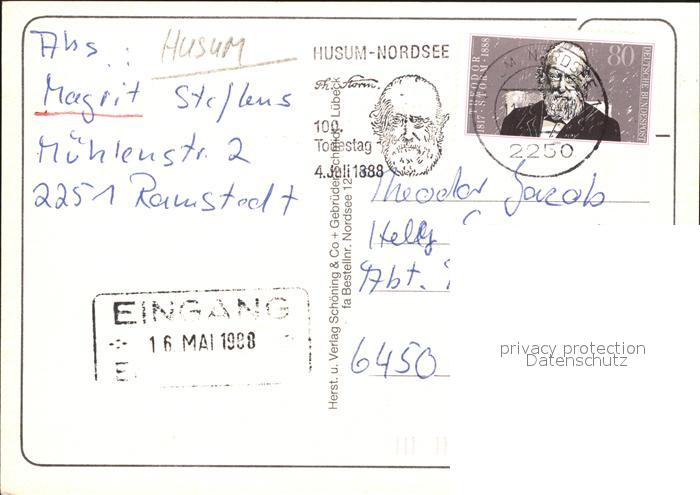 Abs.: Husum
Magrit Steffens
Mühlenstr. 2
2251 Ramstedt
HUSUM-NORDSEE
Th. Storm.
100.
Todestag
4.Juli 1888
THEODOR STORM · 1888
1817 -
80
DEUTSCHE BUNDESPOST
2250
Theodor Jacob
Abt.
6450
EINGANG
16. MAI 1988
E
Herst. u. Verlag Schöning & Co + Gebrüder Schmidt, Lübeck
fa Bestellnr. Nordsee 12
privacy protection
Datenschutz